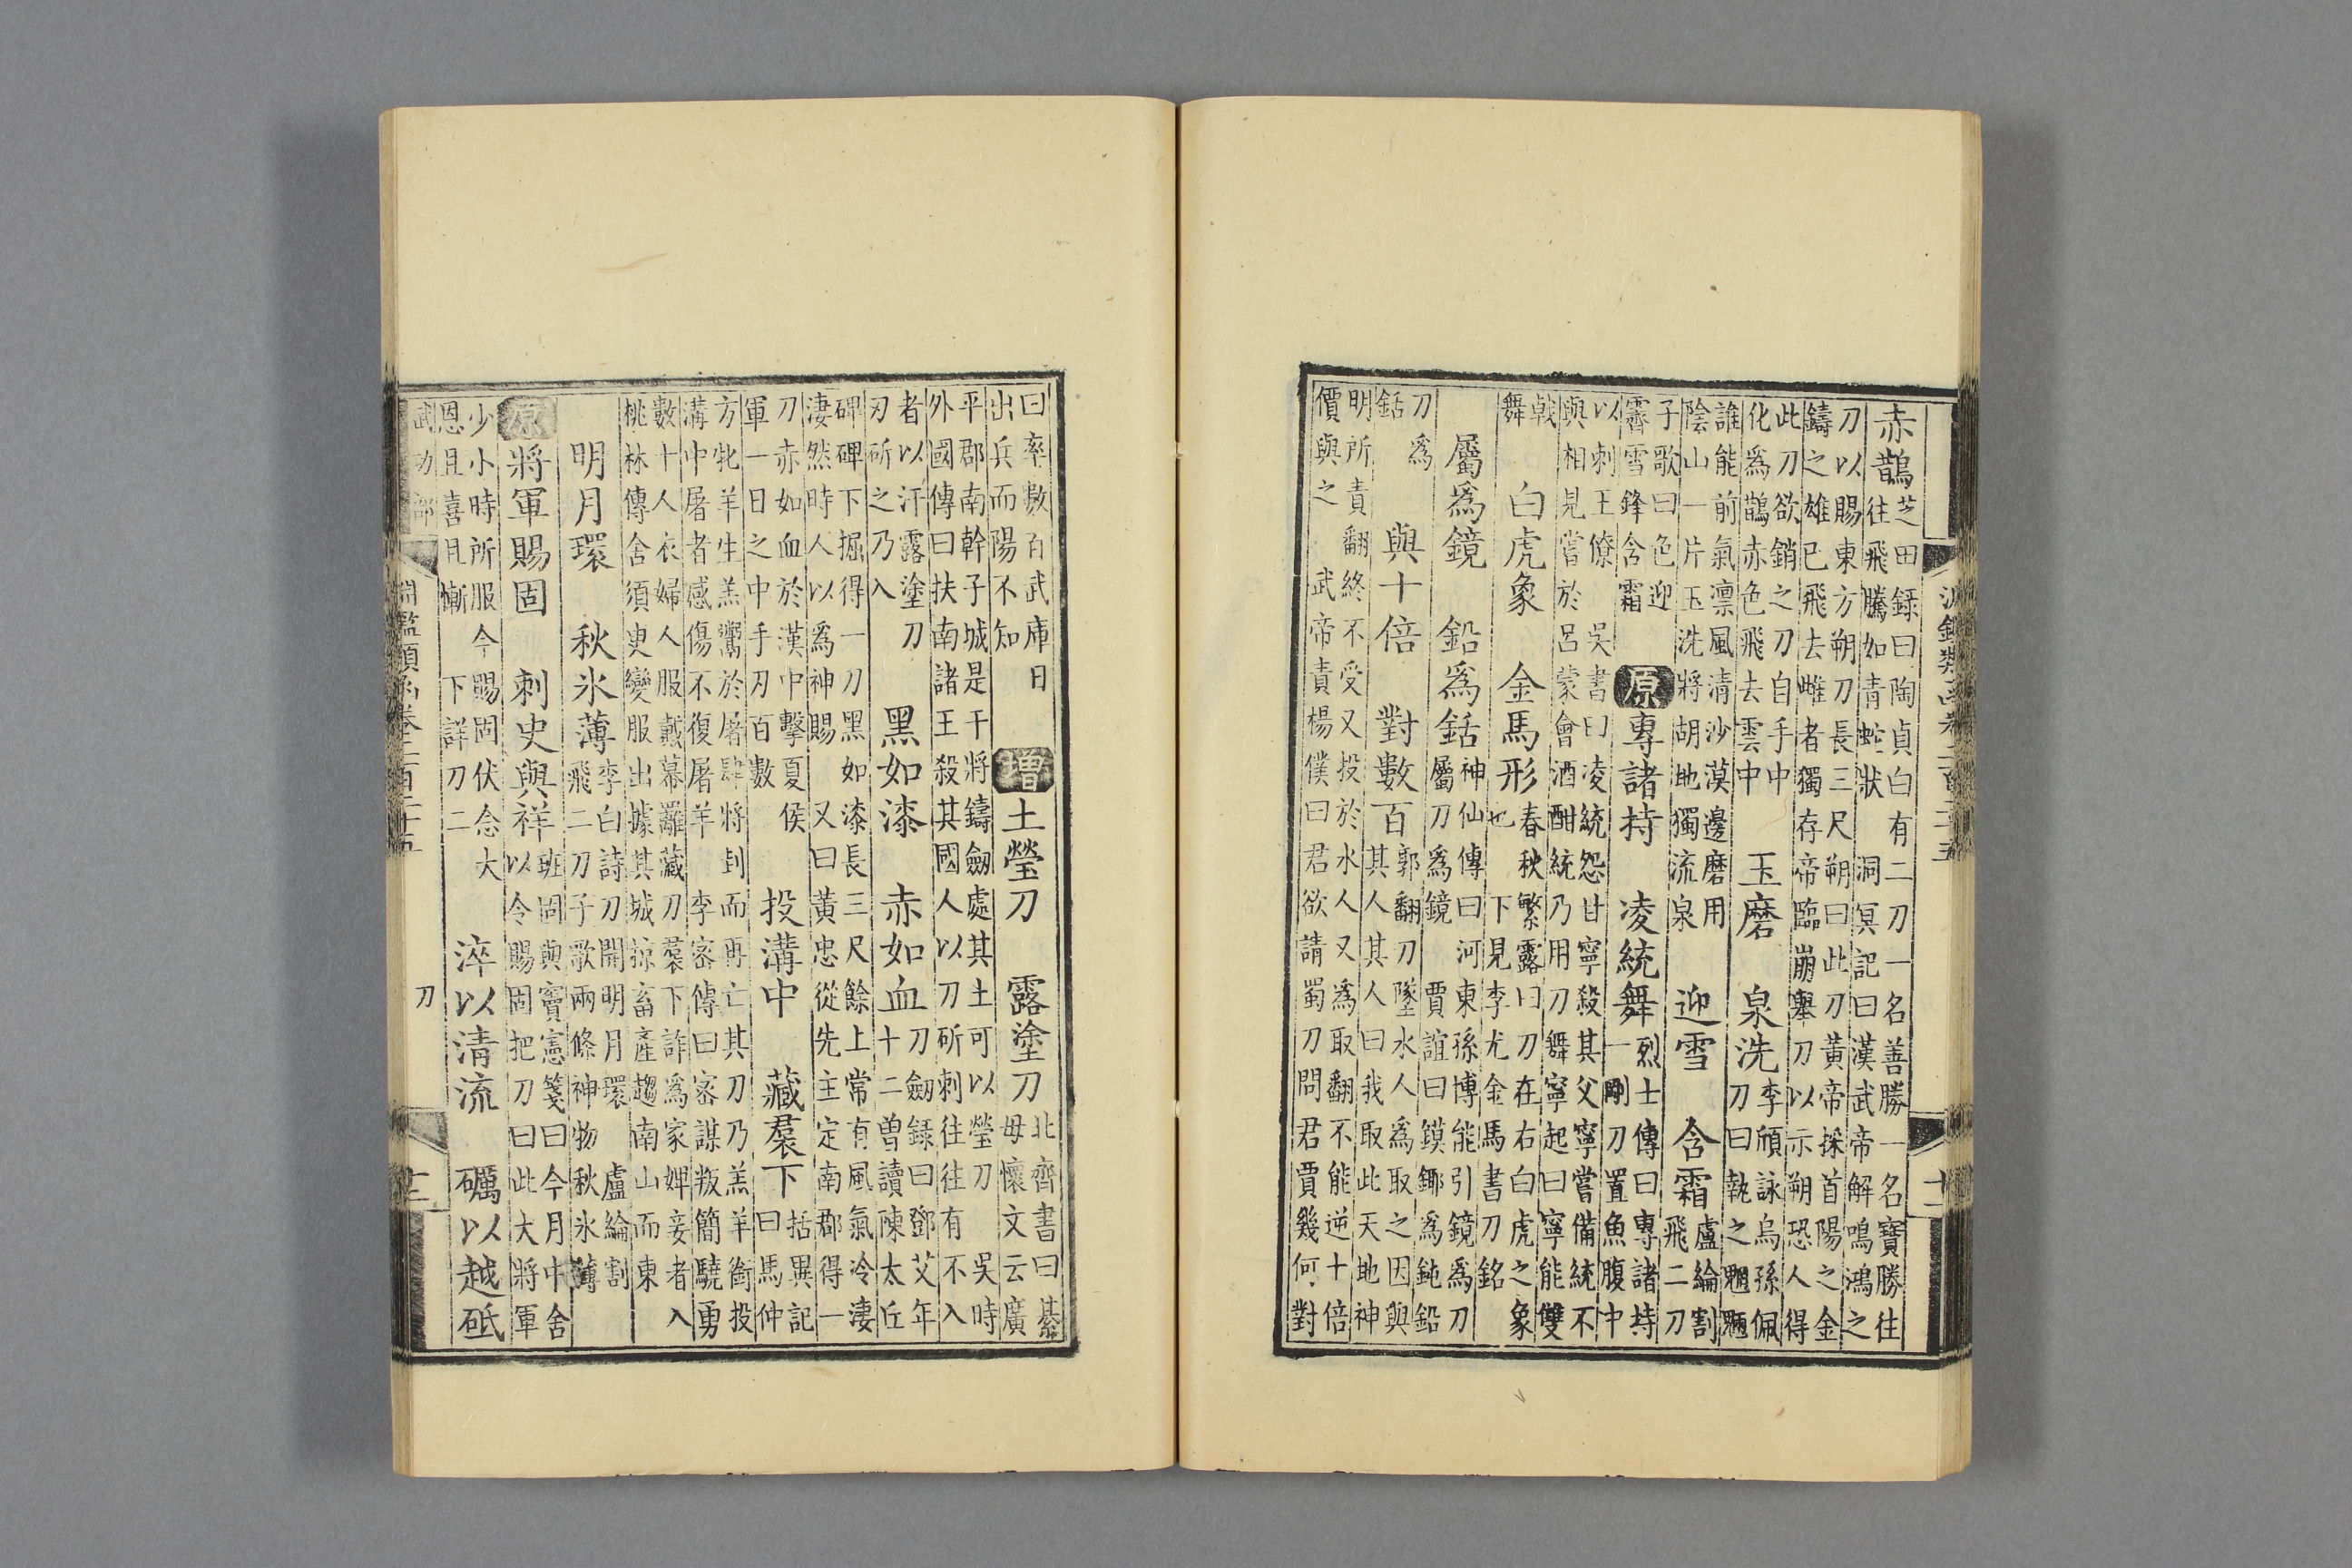 淵鑑類函卷二百二十五 十二
赤鵲 芝田録曰陶貞白有二刀一名善勝一名寶勝往
往飛騰如青蛇狀 洞冥記曰漢武帝解鳴鴻之
刀以賜東方朔刀長三尺朔曰此刀黃帝採首陽之金
鑄之雄已飛去雌者獨存帝臨崩舉刀以示朔恐人得
此刀欲銷之刀自手中
化爲鵲赤色飛去雲中
玉磨 泉洗 李頎詠烏孫佩
刀曰執之魍魎
誰能前氣凛風清沙漠邊磨用
陰山一片玉洗將胡地獨流泉
迎雪 含霜 盧綸割
飛二刀
子歌曰色迎
霽雪鋒含霜
原 專諸持 凌統舞 烈士傳曰專諸持
一剛刀置魚腹中
以刺王僚 吳書曰凌統怨甘寧殺其父寧嘗備統不
與相見嘗於呂蒙會酒酣統乃用刀舞寧起曰寧能雙
戟
舞
白虎象 金馬形 春秋繁露曰刀在右白虎之象
也 下見李尤金馬書刀銘
屬爲鏡 鉛爲銛 神仙傳曰河東孫博能引鏡爲刀
屬刀爲鏡 賈誼曰鏌鎁爲鈍鉛
刀爲
銛
與十倍 對數百 郭翻刀墜水人爲取之因與
其人其人曰我取此天地神
明所責翻終不受又投於水人又爲取翻不能逆十倍
價與之 武帝責楊僕曰君欲請蜀刀問君賈幾何對
曰率數百武庫日
出兵而陽不知
增 土瑩刀 露塗刀 北齊書曰綦
母懷文云廣
平郡南幹子城是干將鑄劒處其土可以瑩刀 吳時
外國傳曰扶南諸王殺其國人以刀斫刺往往有不入
者以汗露塗刀
刃斫之乃入
黑如漆 赤如血 刀劒録曰鄧艾年
十二曽讀陳太丘
碑碑下掘得一刀黑如漆長三尺餘上常有風氣冷淒
淒然時人以爲神賜 又曰黃忠從先主定南郡得一
刀赤如血於漢中擊夏侯
軍一日之中手刃百數
投溝中 藏裠下 括異記
曰馬仲
方牝羊生羔鬻於屠肆將刲而再亡其刀乃羔羊銜投
溝中屠者感傷不復屠羊 李密傳曰密謀叛簡驍勇
數十人衣婦人服戴幕䍦藏刀裠下詐爲家婢妾者入
桃林傳舍須臾變服出據其城掠畜產趨南山而東
明月環 秋氷薄 李白詩刀開明月環 盧綸割
飛二刀子歌兩條神物秋氷薄
原 將軍賜固 刺史與祥 班固與竇憲箋曰今月中舍
以令賜固把刀曰此大將軍
少小時所服今賜固伏念大
恩且喜且慚 下詳刀二
淬以清流 礪以越砥
武功部 淵鑑類函卷二百二十五 刀 十二